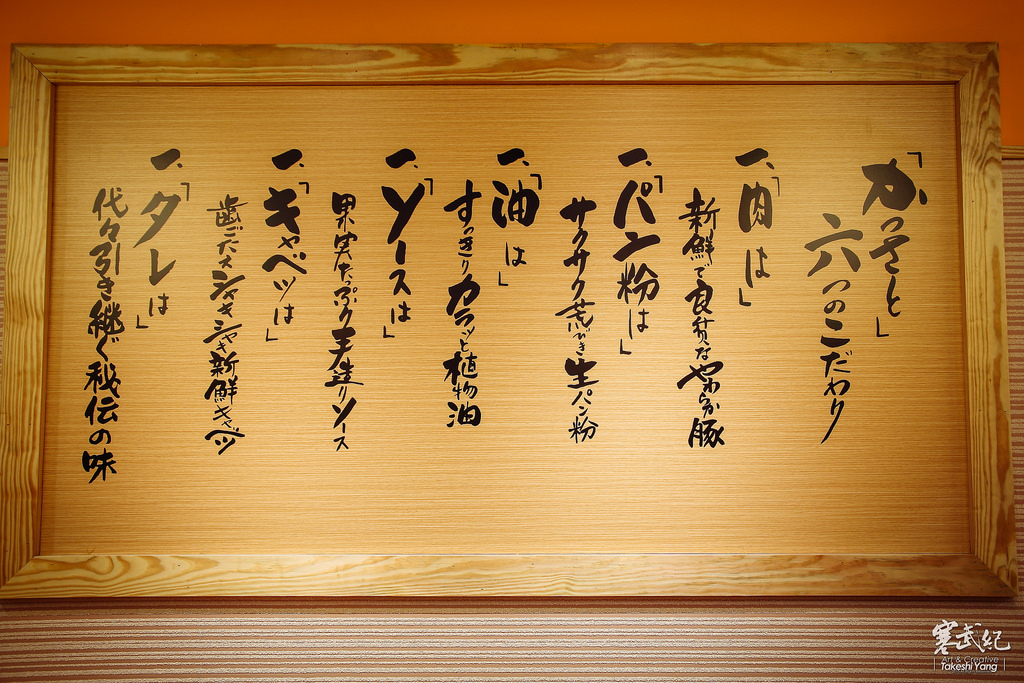 「かつさと」
六つのこだわり
一、「肉は」
新鮮で良質なやわらか豚
一、「パン粉は」
サクサク荒びき生パン粉
一、「油は」
すっきりカラッと植物油
一、「ソースは」
果実たっぷり手造りソース
一、「キャベツは」
歯ごたえシャキシャキ新鮮キャベツ
一、「タレは」
代々引き継ぐ秘伝の味
寒武紀
Art & Creative
Takeshi Yang